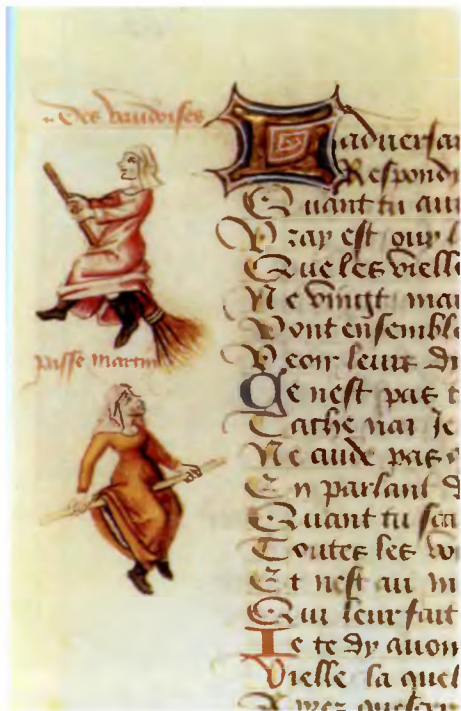 Des vaudoises
passe martin
aduersar
Respondi
Quant tu aur
Vray est ouy l
Que les vielle
Ne vingt
Vont ensemble
Veoir leurs di
Ce nest pas t
Je
Ne cuide pas
En parlant d
Quant tu sca
Toutes les vo
Et nest au m
Qui leur fait
Je te dy auon
Vielle la quel